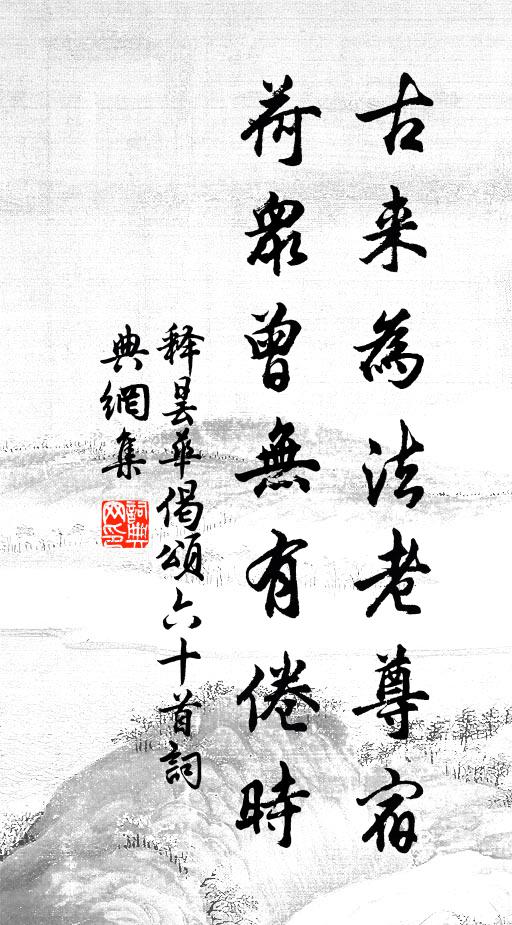 古来為法老尊宿
荷眾曾無有倦時
释昙華偈頌六十首詞
典網集
詞典
网印